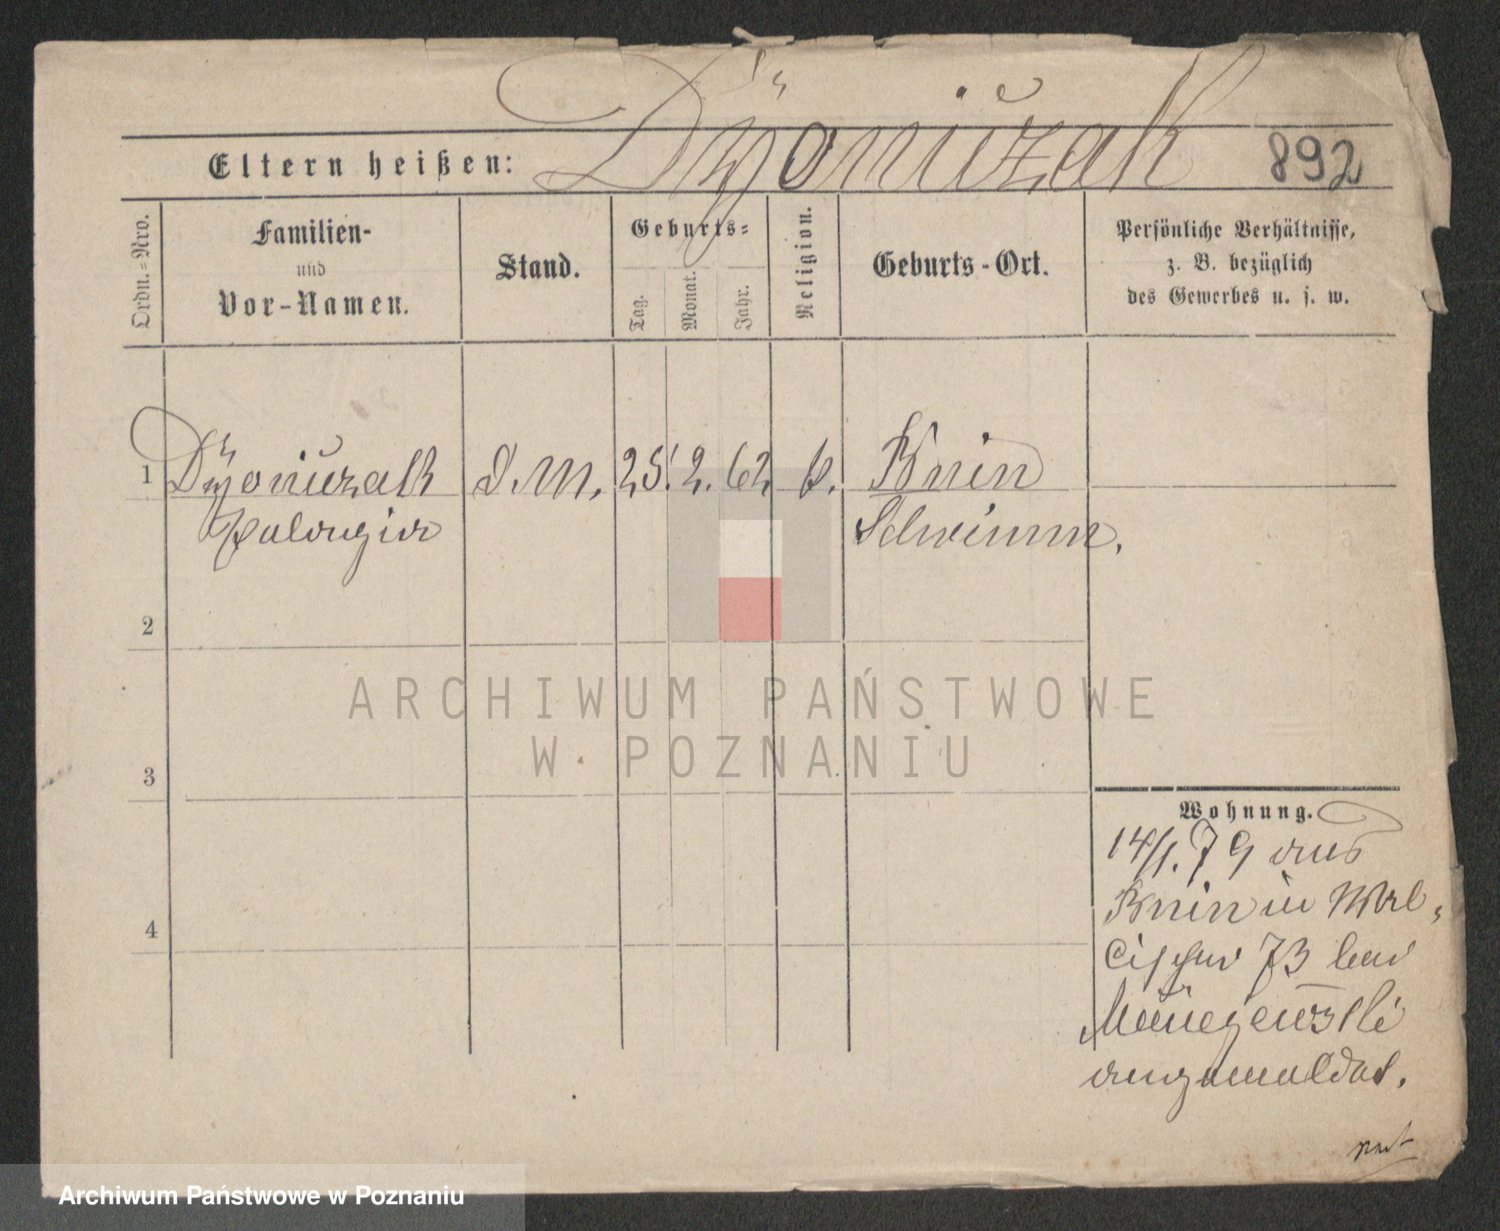 Eltern heißen: Dÿoniczak 892
Ordn.=Nro.
Familien-
und
Vor-Namen.
Stand.
Geburts=
Tag.
Monat.
Jahr.
Religion.
Geburts-Ort.
Persönliche Verhältnisse,
z. B. bezüglich
des Gewerbes u. s. w.
1 Dÿoniczak D. M. 25. 2. 62 k. Knin
Pelagia Schrimm.
2
3
4
ARCHIWUM PAŃSTWOWE
W POZNANIU
Wohnung.
14/1. 79 aus
Knin in
73 bei
angemeldet.
Archiwum Państwowe w Poznaniu